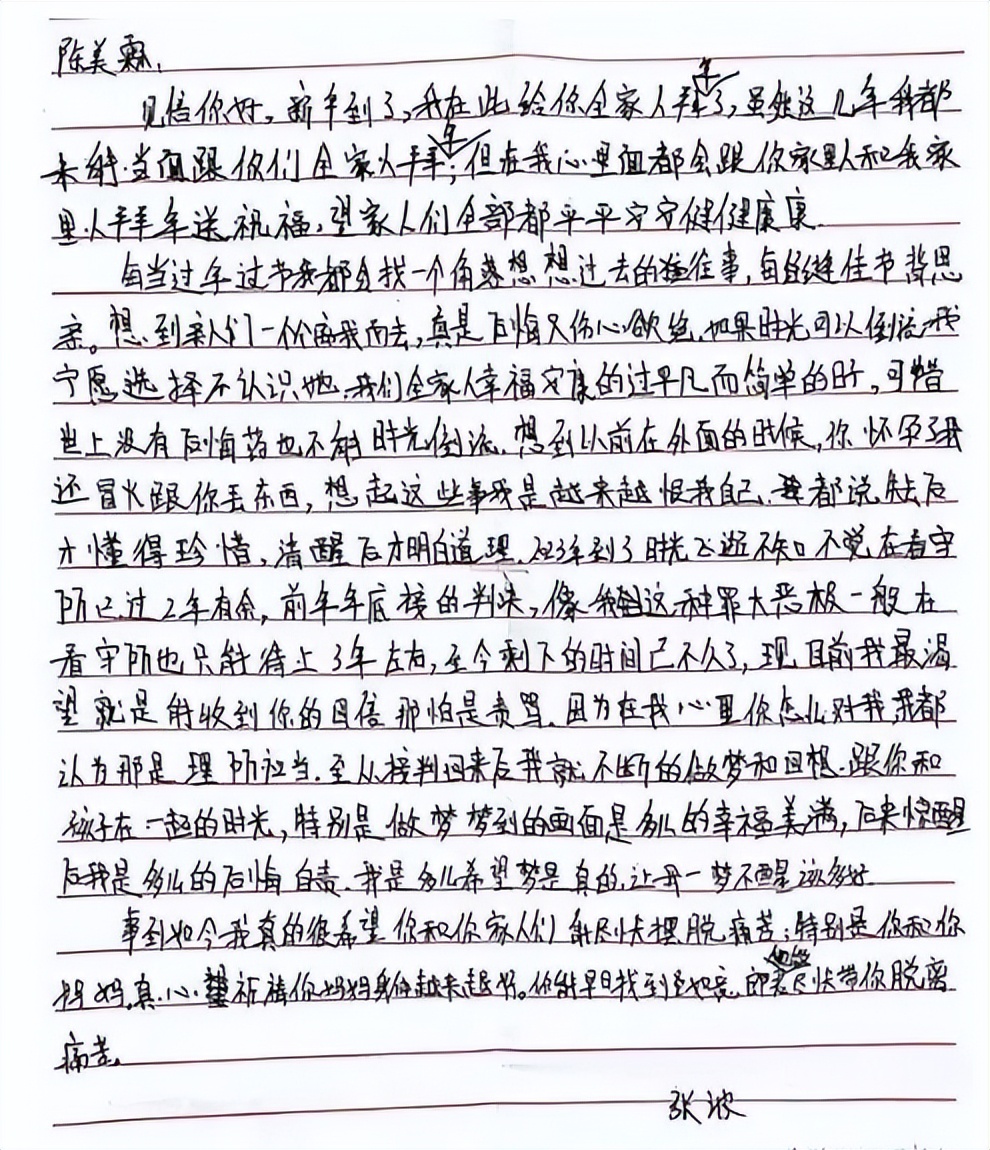 陈美霖,
见信你好,新年到了,我在此给你全家人拜年了,虽然这几年我都
未能当面跟你们全家人拜年;但在我心里面都会跟你家里人和我家
里人拜年送祝福,望家人们全部都平平安安健健康康.
每当过年过节我都会找一个角落想想过去的往事,每逢佳节倍思
亲。想到亲人们一个个离我而去,真是后悔又伤心欲绝.如果时光可以倒流我
宁愿选择不认识她.我们全家人幸福安康的过平凡而简单的日子,可惜
世上没有后悔药也不能时光倒流.想到以前在外面的时候,你怀孕了我
还冒火跟你丢东西,想起这些事我是越来越恨我自己.都说失去后
才懂得珍惜,清醒后才明白道理.到了时光飞逝不知不觉在看守
所已过2年有余,前年年底接的判决,像我这种罪大恶极一般在
看守所也只能待上3年左右,至今剩下的时间已不久了,现目前我最渴
望就是能收到你的回信那怕是责骂.因为在我心里你怎么对我我都
认为那是理所应当.至从接判回来后我就不断的做梦和回想.跟你和
孩子在一起的时光,特别是做梦梦到的画面是多么的幸福美满,后来惊醒
后我是多么的后悔自责.我是多么希望梦是真的.让我一梦不醒该多好.
事到如今我真的很希望你和你家人们能尽快摆脱痛苦;特别是你和你
妈妈.真心祈祷你妈妈身体越来越好。你能早日找到尽快带你脱离
痛苦。
张波